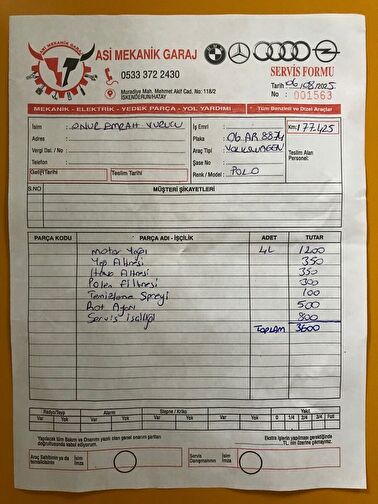 ASİ MEKANİK GARAJ
ASİ MEKANİK GARAJ
0533 372 2430
Muradiye Mah. Mehmet Akif Cad. No: 118/2
İSKENDERUN/HATAY
OPEL
SERVİS FORMU
Tarih 06/08/2025
No : 001563
MEKANİK - ELEKTRİK - YEDEK PARÇA - YOL YARDIMI * Tüm Benzinli ve Dizel Araçlar
İsim : ONUR EMRAH YURUCU
Adres :
Vergi Dai. / No :
Telefon :
Geliş Tarihi Teslim Tarihi
İş Emri :
Plaka : 06 AR 887
Araç Tipi : VOLKSWAGEN
Şase No :
Renk / Model : POLO
Km: 177.425
Teslim Alan
Personel:
S.NO MÜŞTERİ ŞİKAYETLERİ
PARÇA KODU PARÇA ADI - İŞÇİLİK ADET TUTAR
Motor Yağı 4L 1200
Yağ Filtresi 350
Hava Filtresi 350
Polen Filtresi 300
Temizleme Spreyi 100
Rot Ayarı 500
Servis İşçiliği 800
TOPLAM 3600
Radyo/Teyp Alarm Stepne / Kriko Yakıt
Var Yok Var Yok Var Yok Var Yok 0 1/4 2/4 3/4 Full
Yapılacak tüm Bakım ve Onarımı yazılı olan genel onarım şartları
doğrultusunda kabul ediyorum.
Ekstra işlerin yapılması gerektiğinde
TL. nin üzerine çıkmayınız.
Araç Sahibinin ya da
temsilcisinin
İsim
İmza
Servis
Danışmanının
İsim
İmza